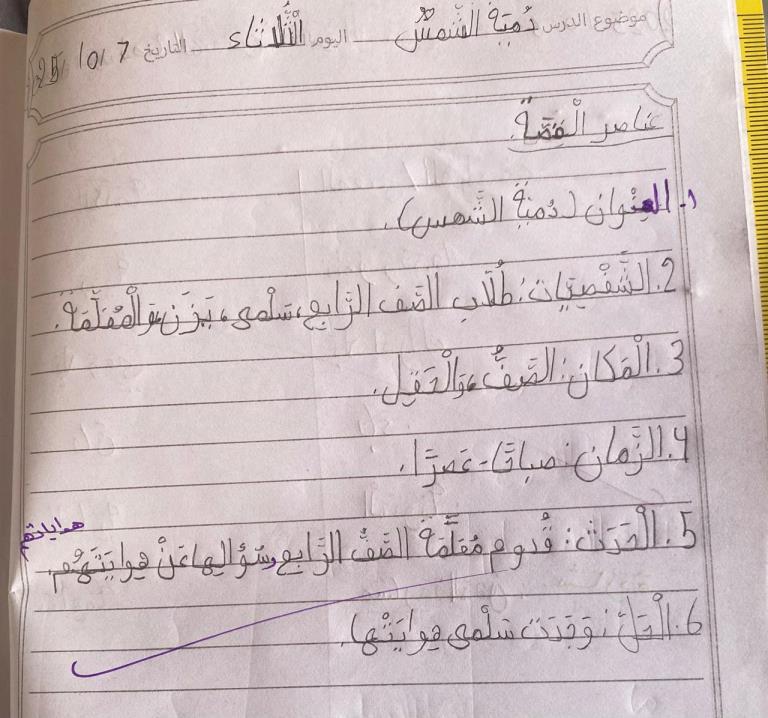 موضوع الدرس دُميَة الشَّمسُ اليوم الثُّلاثاء التاريخ 7 / 10 / 25
عناصر الْقِصَّة
1. العنوان (دُميَة الشَّمس).
2. الشَّخْصِيّات: طُلّاب الصَّف الرَّابِع، سَلْمى، يَزَن، وَالْمُعَلِّمَة.
3. الْمَكان: الصَّفُّ، وَالْحَقِل.
4. الزَّمان: صباحًا - عَصرًا.
هواياتهم
5. الْحَدَث: قُدوم مُعَلِّمَة الصَّفُّ الرَّابِع وسُؤالِها عَنْ هِوايَتَهُم.
6. الْحَلّ: وَجَدَت سَلْمى هِوايَتْها.